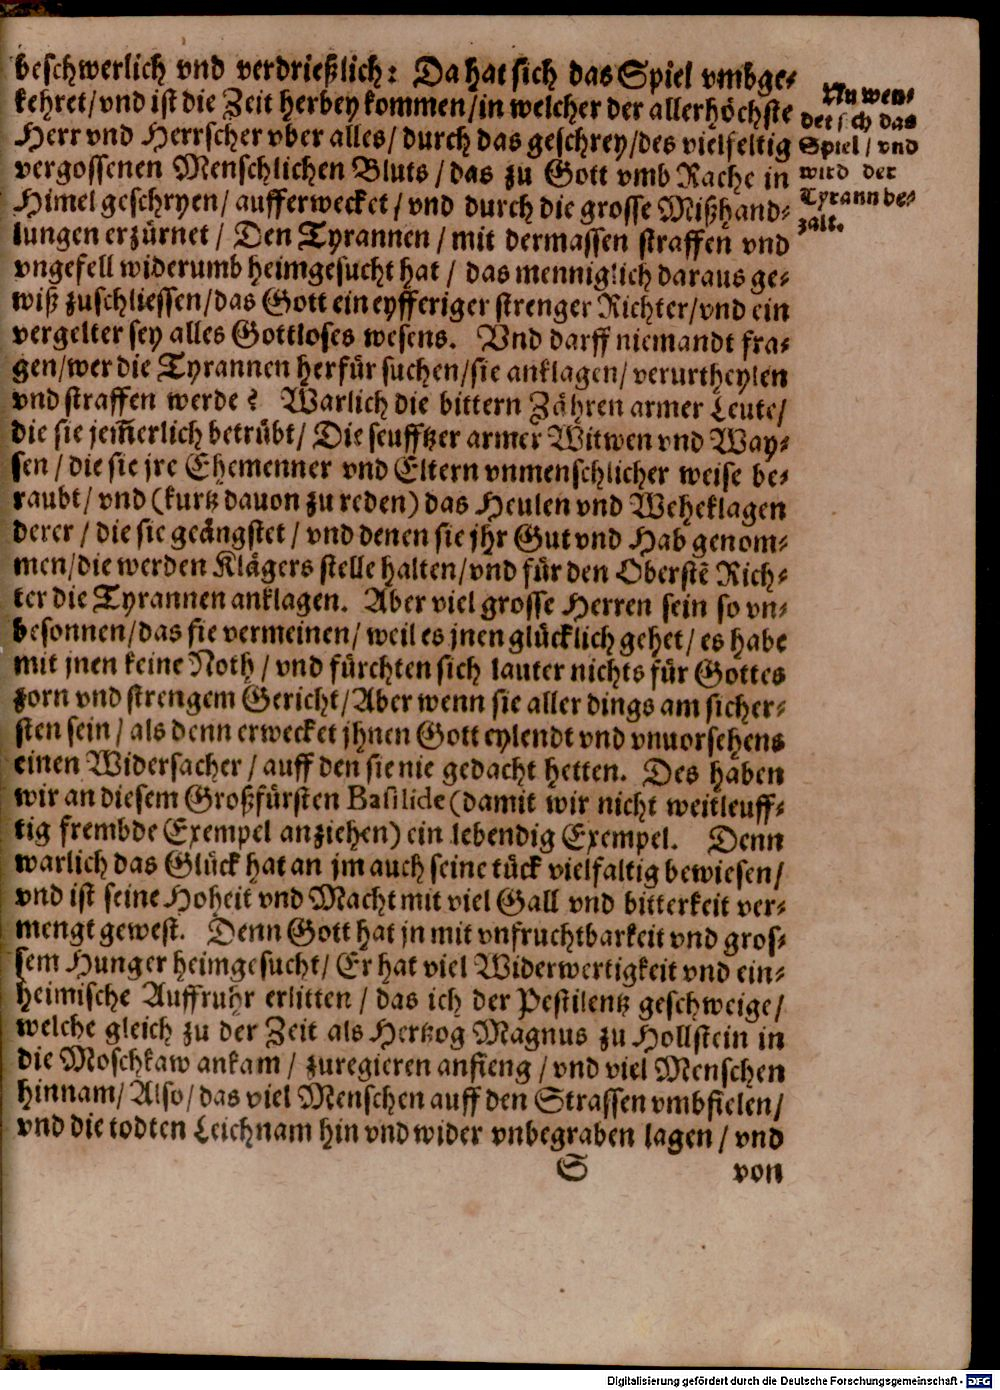 beschwerlich vnd verdrießlich: Da hat sich das Spiel vmbge-
kehret/vnd ist die Zeit herbey kommen/in welcher der allerhöchste
Herr vnd Herrscher vber alles/ durch das geschrey/des vielfeltig
vergossenen Menschlichen Bluts/das zu Gott vmb Rache in
Himel geschryen/ aufferwecket/ vnd durch die grosse Mißhand-
lungen erzürnet/ Den Tyrannen/ mit dermassen straffen vnd
vngefell widerumb heimgesucht hat/ das menniglich daraus ge-
wiß zuschliessen/das Gott ein eyfferiger strenger Richter/vnd ein
vergelter sey alles Gottloses wesens. Vnd darff niemandt fra-
gen/wer die Tyrannen herfür suchen/sie anklagen/ verurtheylen
vnd straffen werde? Warlich die bittern Zähren armer Leute/
die sie jem̃erlich betrübt/ Die seufftzer armer Witwen vnd Way-
sen/ die sie jre Ehemenner vnd Eltern vnmenschlicher weise be-
raubt/ vnd (kurtz dauon zu reden) das Heulen vnd Weheklagen
derer/ die sie geängstet/ vnd denen sie jhr Gut vnd Hab genom-
men/die werden Klägers stelle halten/vnd für den Oberstē Rich-
ter die Tyrannen anklagen. Aber viel grosse Herren sein so vn-
besonnen/das sie vermeinen/ weil es jnen glücklich gehet/ es habe
mit jnen keine Noth/ vnd fürchten sich lauter nichts für Gottes
zorn vnd strengem Gericht/Aber wenn sie aller dings am sicher-
sten sein/ als denn erwecket jhnen Gott eylendt vnd vnuorsehens
einen Widersacher/ auff den sie nie gedacht hetten. Des haben
wir an diesem Großfürsten Basilide (damit wir nicht weitleuff-
tig frembde Exempel anziehen) ein lebendig Exempel. Denn
warlich das Glück hat an jm auch seine tück vielfaltig bewiesen/
vnd ist seine Hoheit vnd Macht mit viel Gall vnd bitterkeit ver-
mengt gewest. Denn Gott hat jn mit vnfruchtbarkeit vnd gros-
sem Hunger heimgesucht/ Er hat viel Widerwertigkeit vnd ein-
heimische Auffruhr erlitten/ das ich der Pestilentz geschweige/
welche gleich zu der Zeit als Hertzog Magnus zu Hollstein in
die Moschkaw ankam/ zuregieren anfieng/ vnd viel Menschen
hinnam/ Also/ das viel Menschen auff den Strassen vmbfielen/
vnd die todten Leichnam hin vnd wider vnbegraben lagen/ vnd
S von
Nu wen-
det sich das
Spiel/ vnd
wird der
Tyrann be-
zalt.
Digitalisierung gefördert durch die Deutsche Forschungsgemeinschaft - DFG